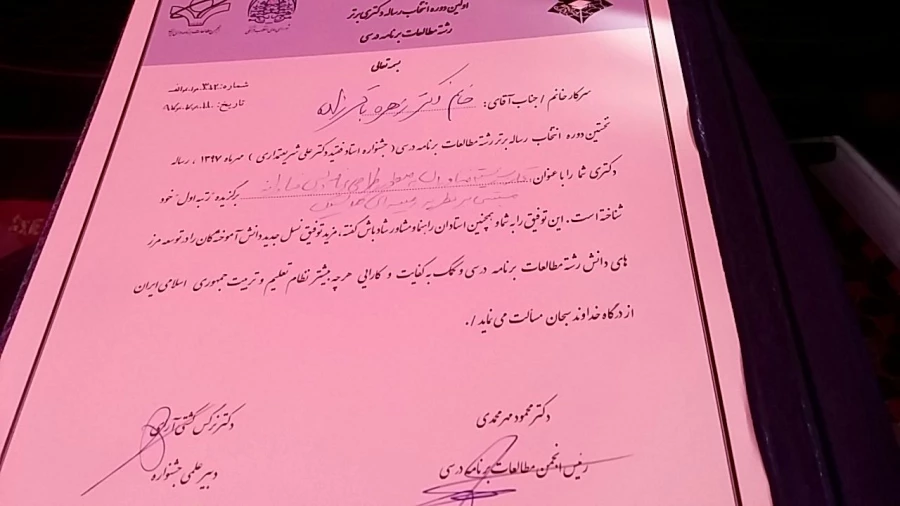 اولین دوره انتخاب رساله دکتری برتر
رشته مطالعات برنامه درسی
بسمه تعالی
شماره:
تاریخ:
سرکار خانم / جناب آقای: خانم دکتر زهره باقرزاده
نخستین دوره انتخاب رساله برتر رشته مطالعات برنامه درسی (جشنواره استاد فقید دکتر علی شریعتمداری) مهرماه ۱۳۹۷، رساله
دکتری شما را با عنوان طراحی برگزیده رتبه اول خود
شناخته است. این توفیق را به شما و همچنین استادان راهنما و مشاور شادباش گفته، مزید توفیق نسل جدید دانش آموختگان را در توسعه مرز
های دانش رشته مطالعات برنامه درسی و کمک به کفایت و کارایی هرچه بیشتر نظام تعلیم و تربیت جمهوری اسلامی ایران
از درگاه خداوند سبحان مسألت می نماید /.
دکتر محمود مهرمحمدی
رئیس انجمن مطالعات برنامه درسی
دکتر نرگس کشتی آرای
دبیر علمی جشنواره